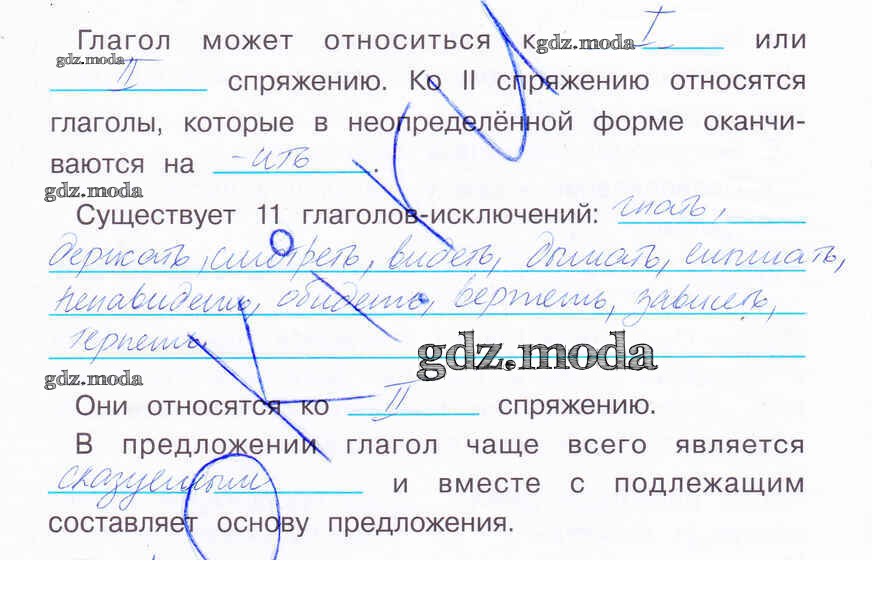 Глагол может относиться к I или
II спряжению. Ко II спряжению относятся
глаголы, которые в неопределённой форме оканчи-
ваются на -ить.
Существует 11 глаголов-исключений: гнать,
держать, смотреть, видеть, дышать, слышать,
ненавидеть, обидеть, вертеть, зависеть,
терпеть.
Они относятся ко II спряжению.
В предложении глагол чаще всего является
сказуемым и вместе с подлежащим
составляет основу предложения.
gdz.moda
gdz.moda
gdz.moda
gdz.moda
gdz.moda